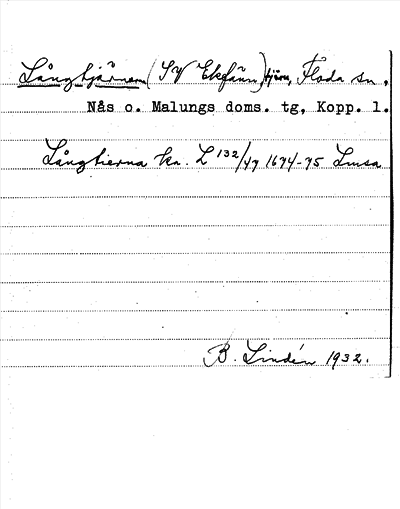 Långtjärnen (SV Ekfänn), tjärn, Floda sn,
Nås o. Malungs doms. tg, Kopp. l.
Långtierna kn. L 132/47 1674-75 Lmsa
B. Lindén 1932.